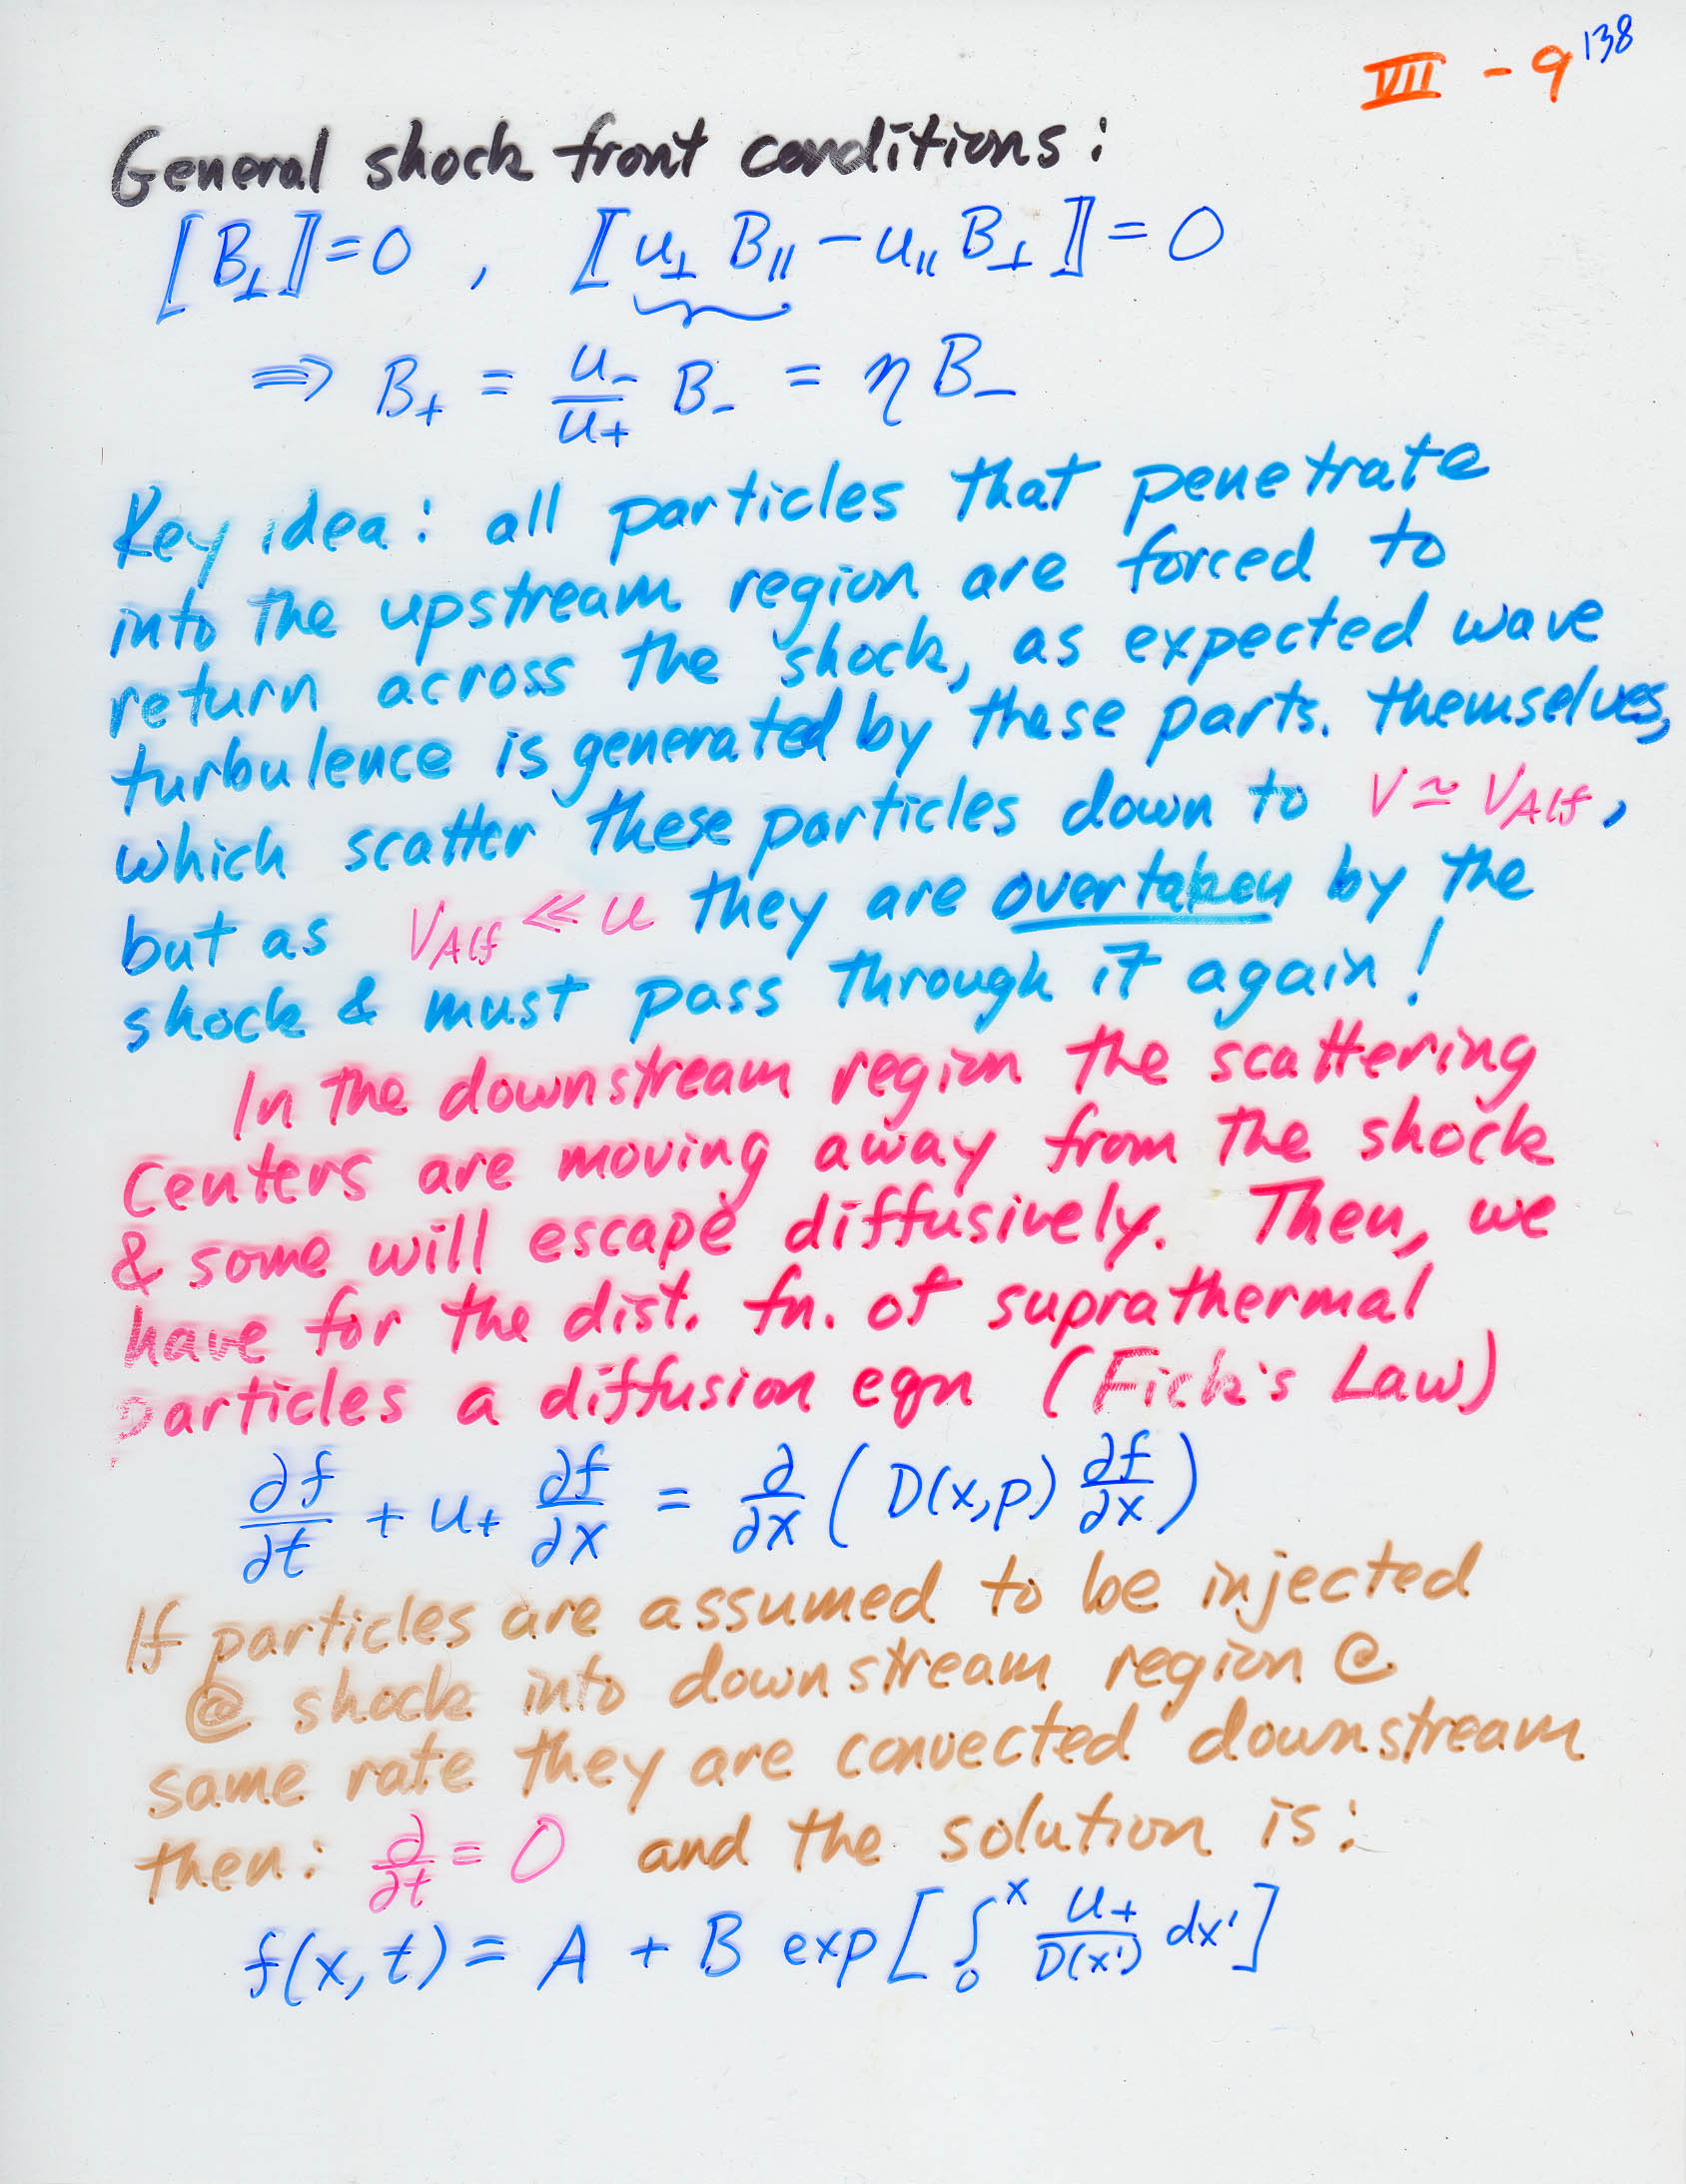 VII - 9 138
General shock front conditions:
[[B⊥]] = 0 , [[u⊥ B∥ - u∥ B⊥]] = 0
⇒ B₊ = u₋/u₊ B₋ = η B₋
Key idea: all particles that penetrate
into the upstream region are forced to
return across the shock, as expected wave
turbulence is generated by these parts. themselves,
which scatter these particles down to V ≃ V_Alf,
but as V_Alf ≪ u they are overtaken by the
shock & must pass through it again!
In the downstream region the scattering
centers are moving away from the shock
& some will escape diffusively. Then, we
have for the dist. fn. of suprathermal
particles a diffusion eqn (Fick's Law)
∂f/∂t + u₊ ∂f/∂x = ∂/∂x ( D(x,p) ∂f/∂x )
If particles are assumed to be injected
@ shock into downstream region @
same rate they are convected downstream
then: ∂/∂t = 0 and the solution is:
f(x,t) = A + B exp[ ∫₀ˣ u₊/D(x') dx' ]